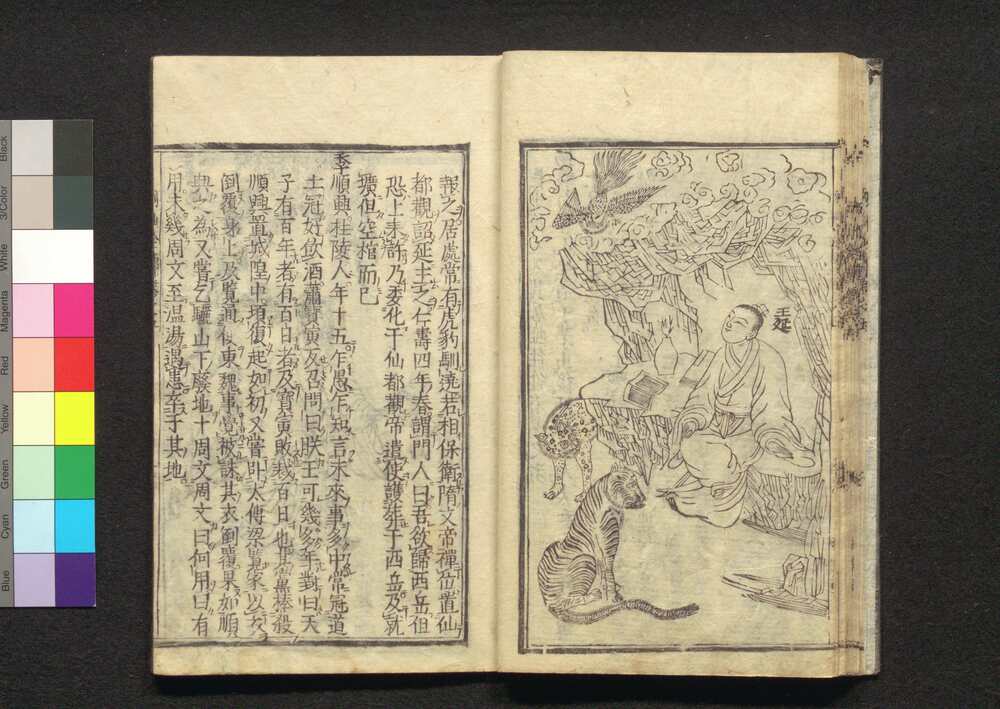 王延
報之居處常有虎豹馴遶若相保衛隋文帝禪位置仙
都觀詔延主之仁壽四年春謂門人曰吾欲歸西岳但
恐上未許乃委化于仙都觀帝遣使護葬于西岳及就
壙但空棺而已
李順興杜陵人年十五乍愚乍知言未來事多中常冠道
士冠好飲酒蕭寶寅反召問曰朕王可幾多年對曰天
子有百年者有百日者及寶寅敗裁百日也
殺
順興置城隍中頃復起如初又嘗臥太傅梁覽家以衣
倒覆身上及覽通使東魏事覺被誅其衣倒覆果如順
興 為又嘗乞驪山下廢地十周文周文曰何用曰有
用未幾周文至溫湯遇患卒于其地
Black
3/Color
White
Magenta
Red
Yellow
Green
Cyan
Blue